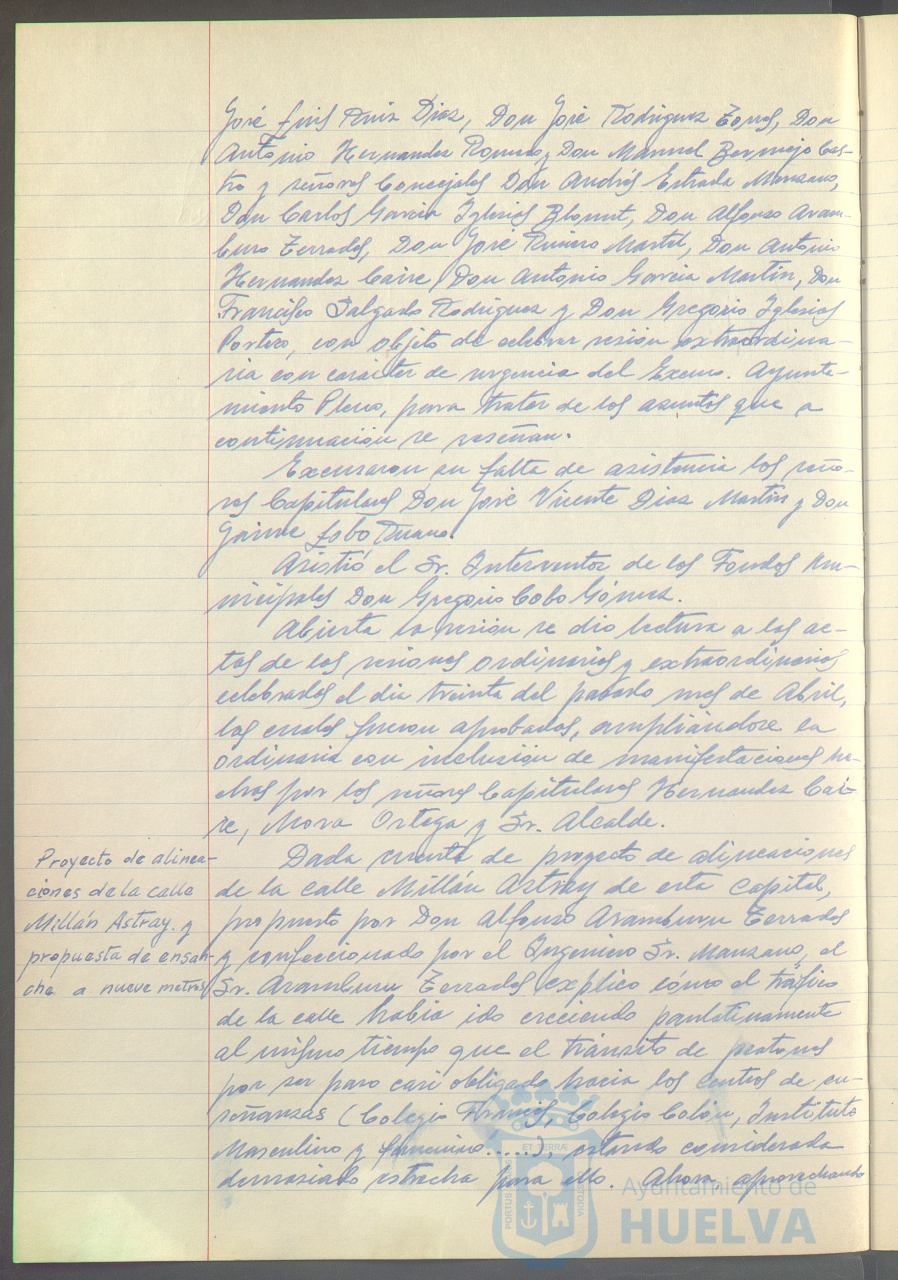 José Luis Ruiz Diaz, Don José Rodriguez Torres, Don
Antonio Hernandez Romero, Don Manuel Bermejo Cas-
tro y señores Concejales Don Andrés Estrada Manzano,
Don Carlos Garcia Iglesias Blount, Don Alfonso Aram-
buru Terrados, Don José Rivero Martel, Don Antonio
Hernandez Caire, Don Antonio Garcia Martin, Don
Francisco Salgado Rodriguez y Don Gregorio Iglesias
Portero, con objeto de celebrar sesión extraordina-
ria con carácter de urgencia del Excmo. Ayunta-
miento Pleno, para tratar de los asuntos que a
continuación se reseñan.
Excusaron su falta de asistencia los seño-
res Capitulares Don José Vicente Diaz Martin y Don
Jaime Lobo Ruano.
Asistió el Sr. Interventor de los Fondos Mu-
nicipales Don Gregorio Cobo Gómez.
Abierta la sesión se dio lectura a las ac-
tas de las sesiones ordinarias y extraordinarias
celebradas el dia treinta del pasado mes de Abril,
las cuales fueron aprobadas, ampliándose la
ordinaria con inclusión de manifestaciones he-
chas por los señores Capitulares Hernandez Cai-
re, Mora Ortega y Sr. Alcalde.
Proyecto de alinea-
ciones de la calle
Millán Astray. y
propuesta de ensan-
che a nueve metros
Dada cuenta de proyecto de alineaciones
de la calle Millán Astray de esta Capital,
propuesto por Don Alfonso Aramburu Terrados
y confeccionado por el Ingeniero Sr. Manzano, el
Sr. Aramburu Terrados explico cómo el tráfico
de la calle habia ido creciendo paulatinamente
al mismo tiempo que el tránsito de peatones
por ser paso casi obligado hacia los centros de en-
señanzas (Colegio Francés, Colegio Colón, Instituto
Masculino y femenino.....), estando considerada
demasiado estrecha para ello. Ahora, aprovechando
Ayuntamiento de
HUELVA